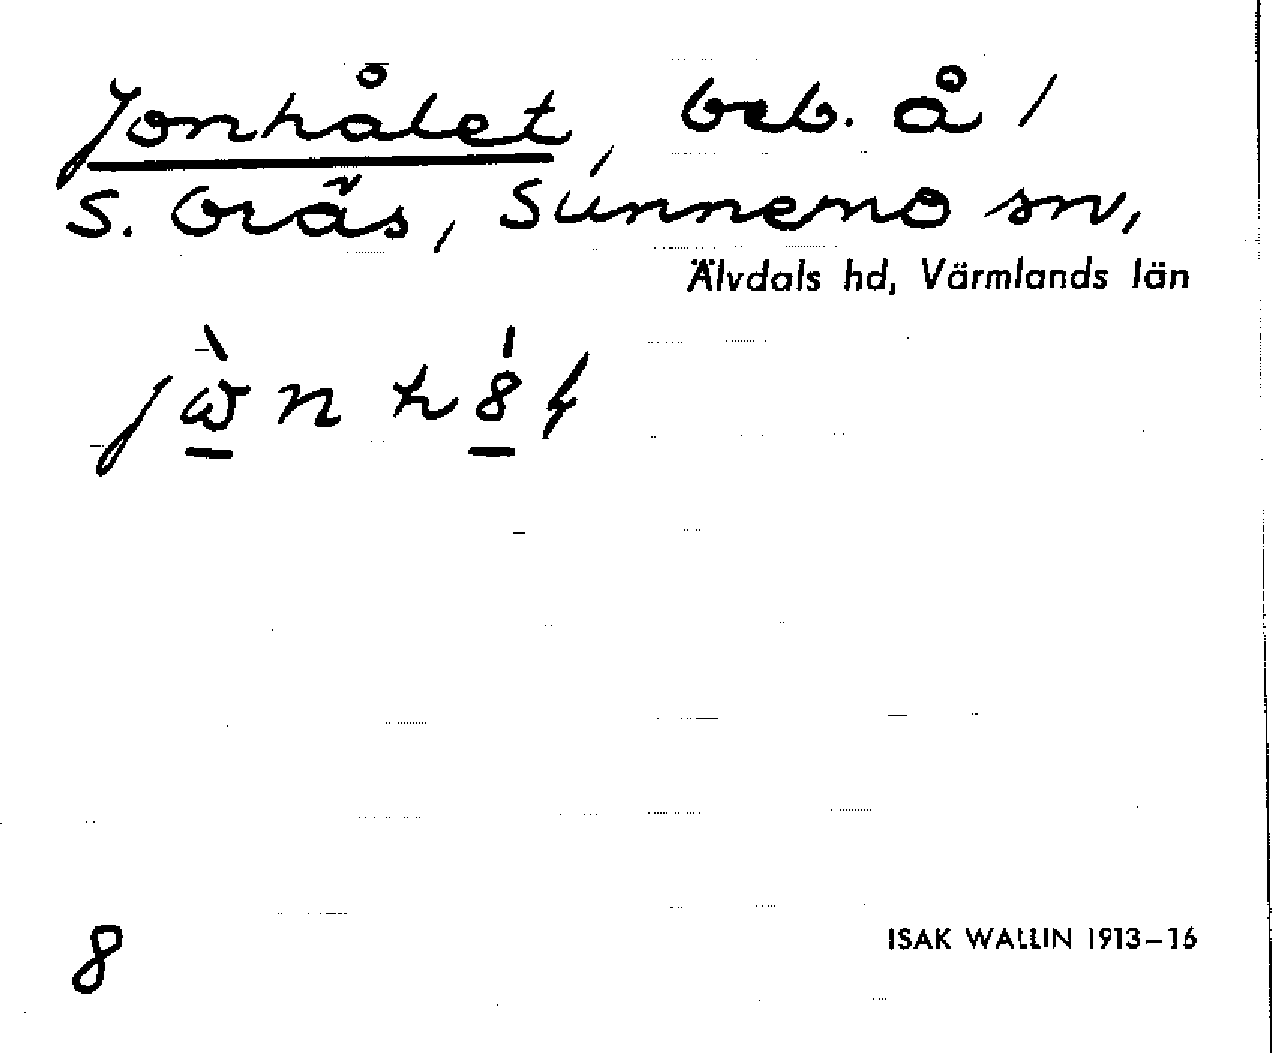 Jonhålet, beb. å /
S. Öräs, Sunnemo sn,
Älvdals hd, Värmlands län
8
ISAK WALLIN 1913–16